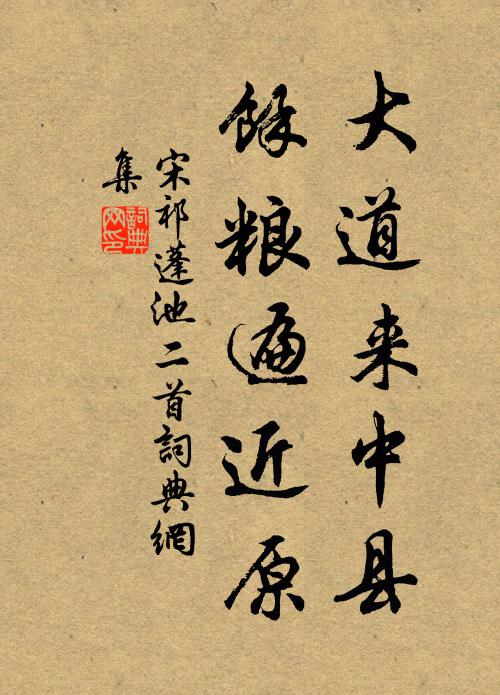 大道来中县
餘粮遍近原
宋祁蓬池二首詞典網
集
詞典网印